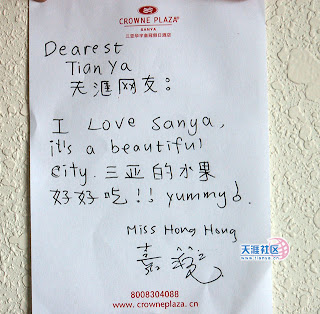 CROWNE PLAZA
SANYA
Dearest
Tian Ya
天涯网友:
I Love Sanya,
it's a beautiful
city. 三亚的水果
好好吃!! yummy!
Miss Hong Hong
天涯社区
8008304088
www.crowneplaza.cn